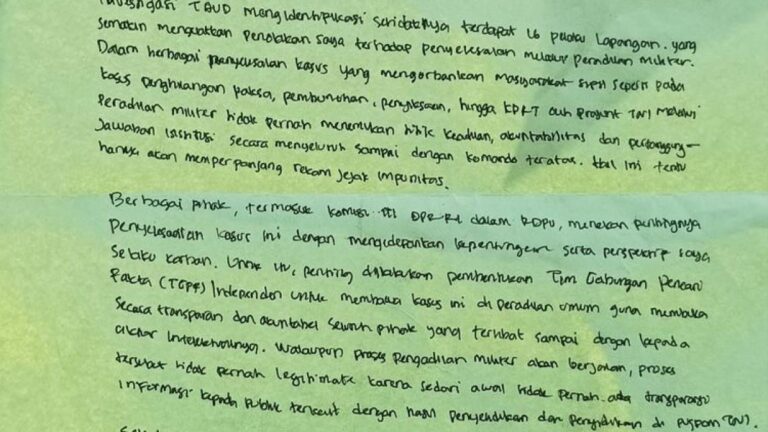 Investigasi TAUD mengidentifikasi setidaknya terdapat 16 pelaku lapangan. yang
semakin menguatkan penolakan saya terhadap penyelesaian melalui peradilan militer.
Dalam berbagai penyelesaian kasus yang mengorbankan masyarakat sipil seperti pada
kasus penghilangan paksa, pembunuhan, penyiksaan, hingga KDRT oleh prajurit TNI melalui
Peradilan militer tidak pernah menemukan titik keadilan, akuntabilitas dan pertanggung-
jawaban institusi secara menyeluruh sampai dengan komando teratas. Hal ini tentu
hanya akan memperpanjang rekam jejak impunitas.
Berbagai pihak, termasuk komisi III DPR RI dalam RDPU, menekan pentingnya
penyelesaian kasus ini dengan mengedepankan kepentingan serta perspektif saya
selaku korban. Untuk itu, penting dilakukan pembentukan Tim Gabungan Pencari
Fakta (TGPF) Independen untuk membawa kasus ini di peradilan umum guna membuka
secara transparan dan akuntabel seluruh pihak yang terlibat sampai dengan kepada
aktor intelektualnya. Walaupun proses pengadilan militer akan berjalan, proses
tersebut tidak pernah legitimate karena sedari awal tidak pernah ada transparansi
informasi kepada publik terkait dengan hasil penyelidikan dan penyidikan di Puspom TNI.